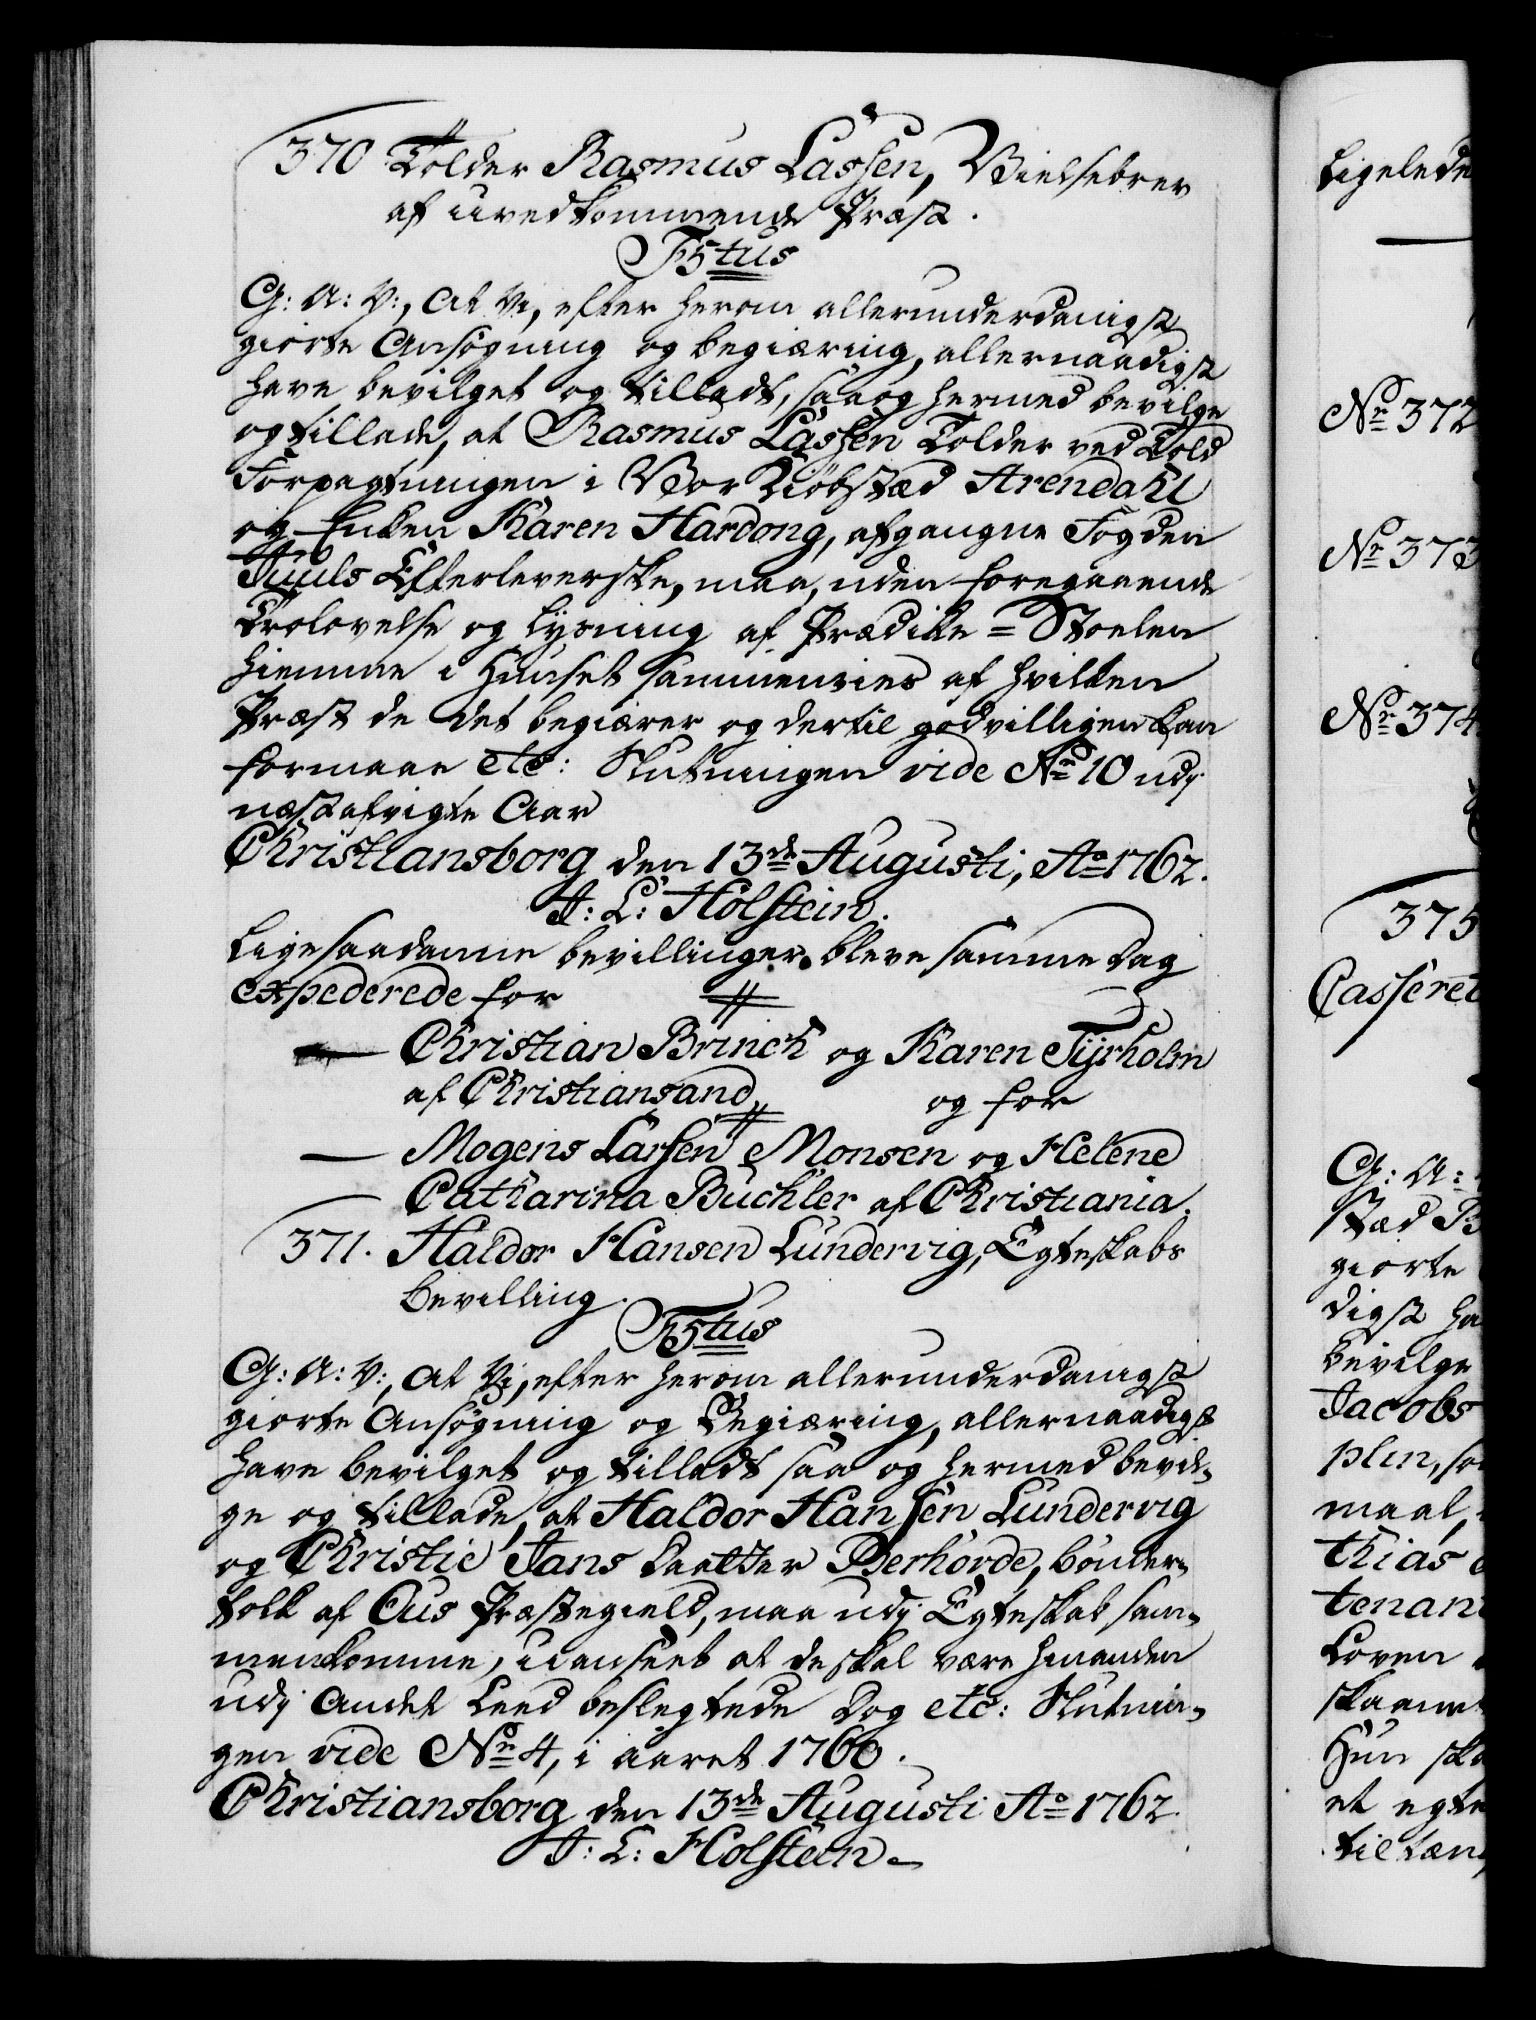 370 Tolder Rasmus Lassen, Vielsebrev
af uvedkommende Præst.
F5tus
G: A: V:, At Vi, efter herom allerunderdanigst
giorte Ansøgning og begiæring, allernaadigst
have bevilget og tilladt, saa og hermed bevilge
og tillade, at Rasmus Lassen Tolder ved Told
Forpagtningen i Vor Kiøbstæd Arendahl
og Enken Karen Hardong, afgangne Fogden
Juuls Efterleverske, maa, uden foregaaende
Trolovelse og Lysning af Prædike=Stoelen
hiemme i Huuset sammenvies af hvilken
Præst de det begiærer og dertil godvilligen kan
formaae etc: Slutningen vide No 10 udj
næstafvigte Aar
Christiansborg den 13de Augusti, Ao 1762.
J: L: Holstein.
Ligesaadanne bevillinger bleve samme Dag
expederede for
Christian Brinch og Karen Tyrholm
af Christiansand, og for
Mogens Larsen Monsen og Helene
Catharina Büchler af Christiania.
371. Haldor Hansen Lundervig, Egteskabs
bevilling.
F5tus
G: A: V:, At Vi, efter herom allerunderdanigst
giorte Ansøgning og Begiæring, allernaadigst
have bevilget og tilladt saa og hermed bevil-
ge og tillade, at Haldor Hansen Lundervig
og Christie Jans Daatter Berhørde, bønder-
folk af Ous Præstegield, maa udj Egteskab sam-
menkomme, uanseet at de skal være hinanden
udj Andet Leed beslegtede Dog etc: Slutnin-
gen vide No 4, i aaret 1760.
Christiansborg den 13de Augusti Ao 1762.
J: L: Holstein.
Ligelede
No 372
No 373
No 374
375
Casseret
G: A:
stæd B
giorte
digst ha
bevilge
Jacobs
plin, so
maal,
thias
tenant
Loven
skaanet
Hun ska
et egte
tiltæn